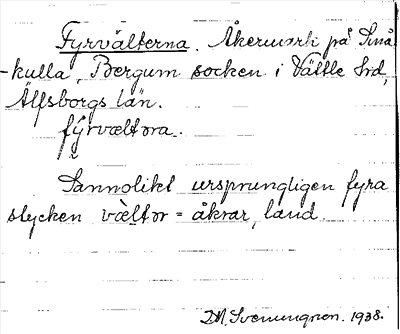 Fyrvälterna. Åkermark på Små
-kulla, Bergum socken i Vättle hd,
Älfsborgs län.
fy̆rvæltɒra.
Sannolikt ursprungligen fyra
stycken vàeltɒr = åkrar, land.
D.M. Svenungson. 1938.